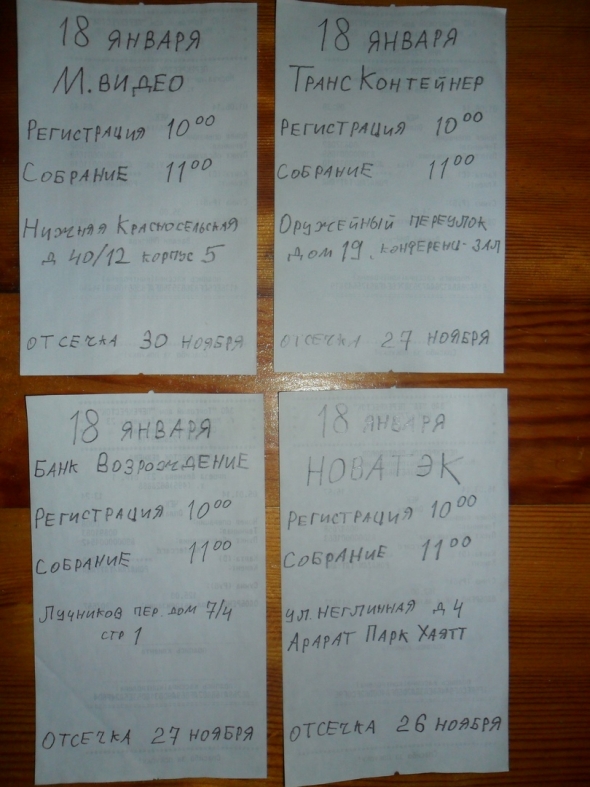 18 ЯНВАРЯ
М.ВИДЕО
РЕГИСТРАЦИЯ 10⁰⁰
СОБРАНИЕ 11⁰⁰
НИЖНЯЯ КРАСНОСЕЛЬСКАЯ
Д 40/12 КОРПУС 5
ОТСЕЧКА 30 НОЯБРЯ
18 ЯНВАРЯ
ТРАНСКОНТЕЙНЕР
РЕГИСТРАЦИЯ 10⁰⁰
СОБРАНИЕ 11⁰⁰
ОРУЖЕЙНЫЙ ПЕРЕУЛОК
ДОМ 19, КОНФЕРЕНЦ-ЗАЛ
ОТСЕЧКА 27 НОЯБРЯ
18 ЯНВАРЯ
БАНК ВОЗРОЖДЕНИЕ
РЕГИСТРАЦИЯ 10⁰⁰
СОБРАНИЕ 11⁰⁰
ЛУЧНИКОВ ПЕР. ДОМ 7/4
СТР 1
ОТСЕЧКА 27 НОЯБРЯ
18 ЯНВАРЯ
НОВАТЭК
РЕГИСТРАЦИЯ 10⁰⁰
СОБРАНИЕ 11⁰⁰
УЛ. НЕГЛИННАЯ Д 4
АРАРАТ ПАРК ХАЯТТ
ОТСЕЧКА 26 НОЯБРЯ